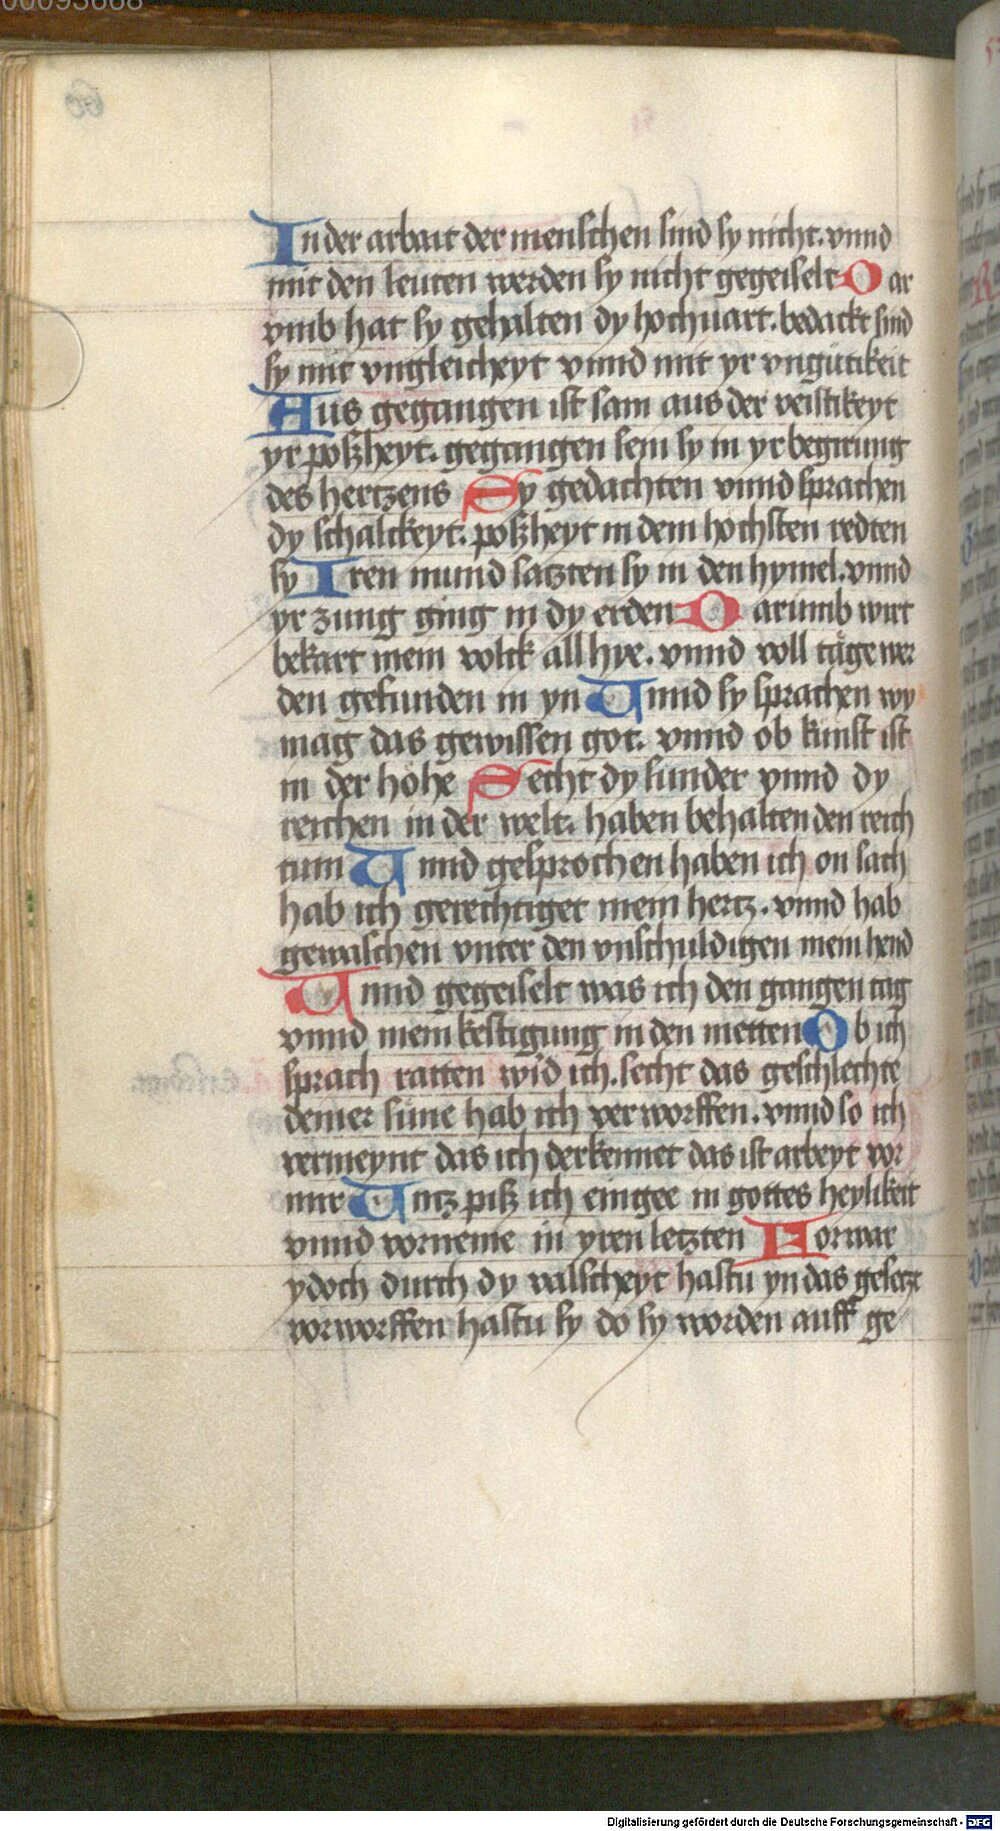 00093668
In der arbait der menschen sind sy nicht. vnnd
mit den leuten werden sy nicht gegeiselt Dar
vmb hat sy gehalten dy hochuart. bedackt sind
sy mit vngleicheyt vnnd mit yr vngutikeit
Aus gegangen ist sam aus der veistikeyt
yr poßheyt. gegangen sein sy in yr begirung
des hertzens Sy gedachten vnnd sprachen
dy schalckeyt. poßheyt in dem hochsten redten
sy Iren mund satzten sy in den hymel. vnnd
yr zung ging in dy erden Darumb wirt
bekart mein volck all hye. vnnd voll täge wer
den gefunden in yn Vnnd sy sprachen wy
mag das gewissen got. vnnd ob kunst ist
in der höhe Secht dy sunder vnnd dy
reichen in der welt. haben behalten den reich
tum Vnnd gesprochen haben ich on sach
hab ich gerechtiget mein hertz. vnnd hab
gewaschen vnter den vnschuldigen mein hend
Vnnd gegeiselt was ich den gangen tag
vnnd mein kestigung in den metten Ob ich
sprach ratten wid ich. secht das geschlechte
deiner süne hab ich verworffen. vnnd so ich
vermeynt das ich derkennet das ist arbeyt vor
mir Vntz piß ich eingee in gottes heylikeit
vnnd vorneme in yren letzten Vorwar
ydoch durch dy valscheyt hastu yn das gesetzt
vorworffen hastu sy do sy worden auff ge
Digitalisierung gefördert durch die Deutsche Forschungsgemeinschaft - DFG